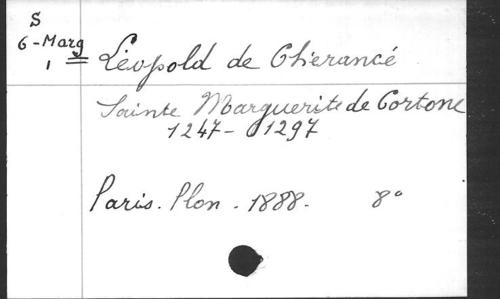 S
6-Marg
1
Léopold de Chérancé
Sainte Marguerite de Cortone
1247- 1297
Paris. Plon. 1888. 8°